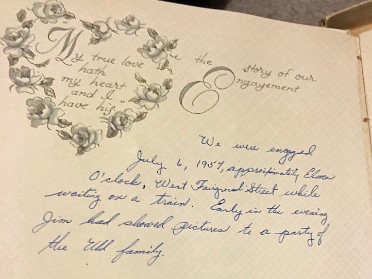 My true love
hath
my heart
and I
have his
the story of our
Engagement
We were engaged
July 6, 1957, approximately Eleven
O'clock, West Street while
waiting on a train. Early in the evening
Jim had showed pictures to a party of
the family.